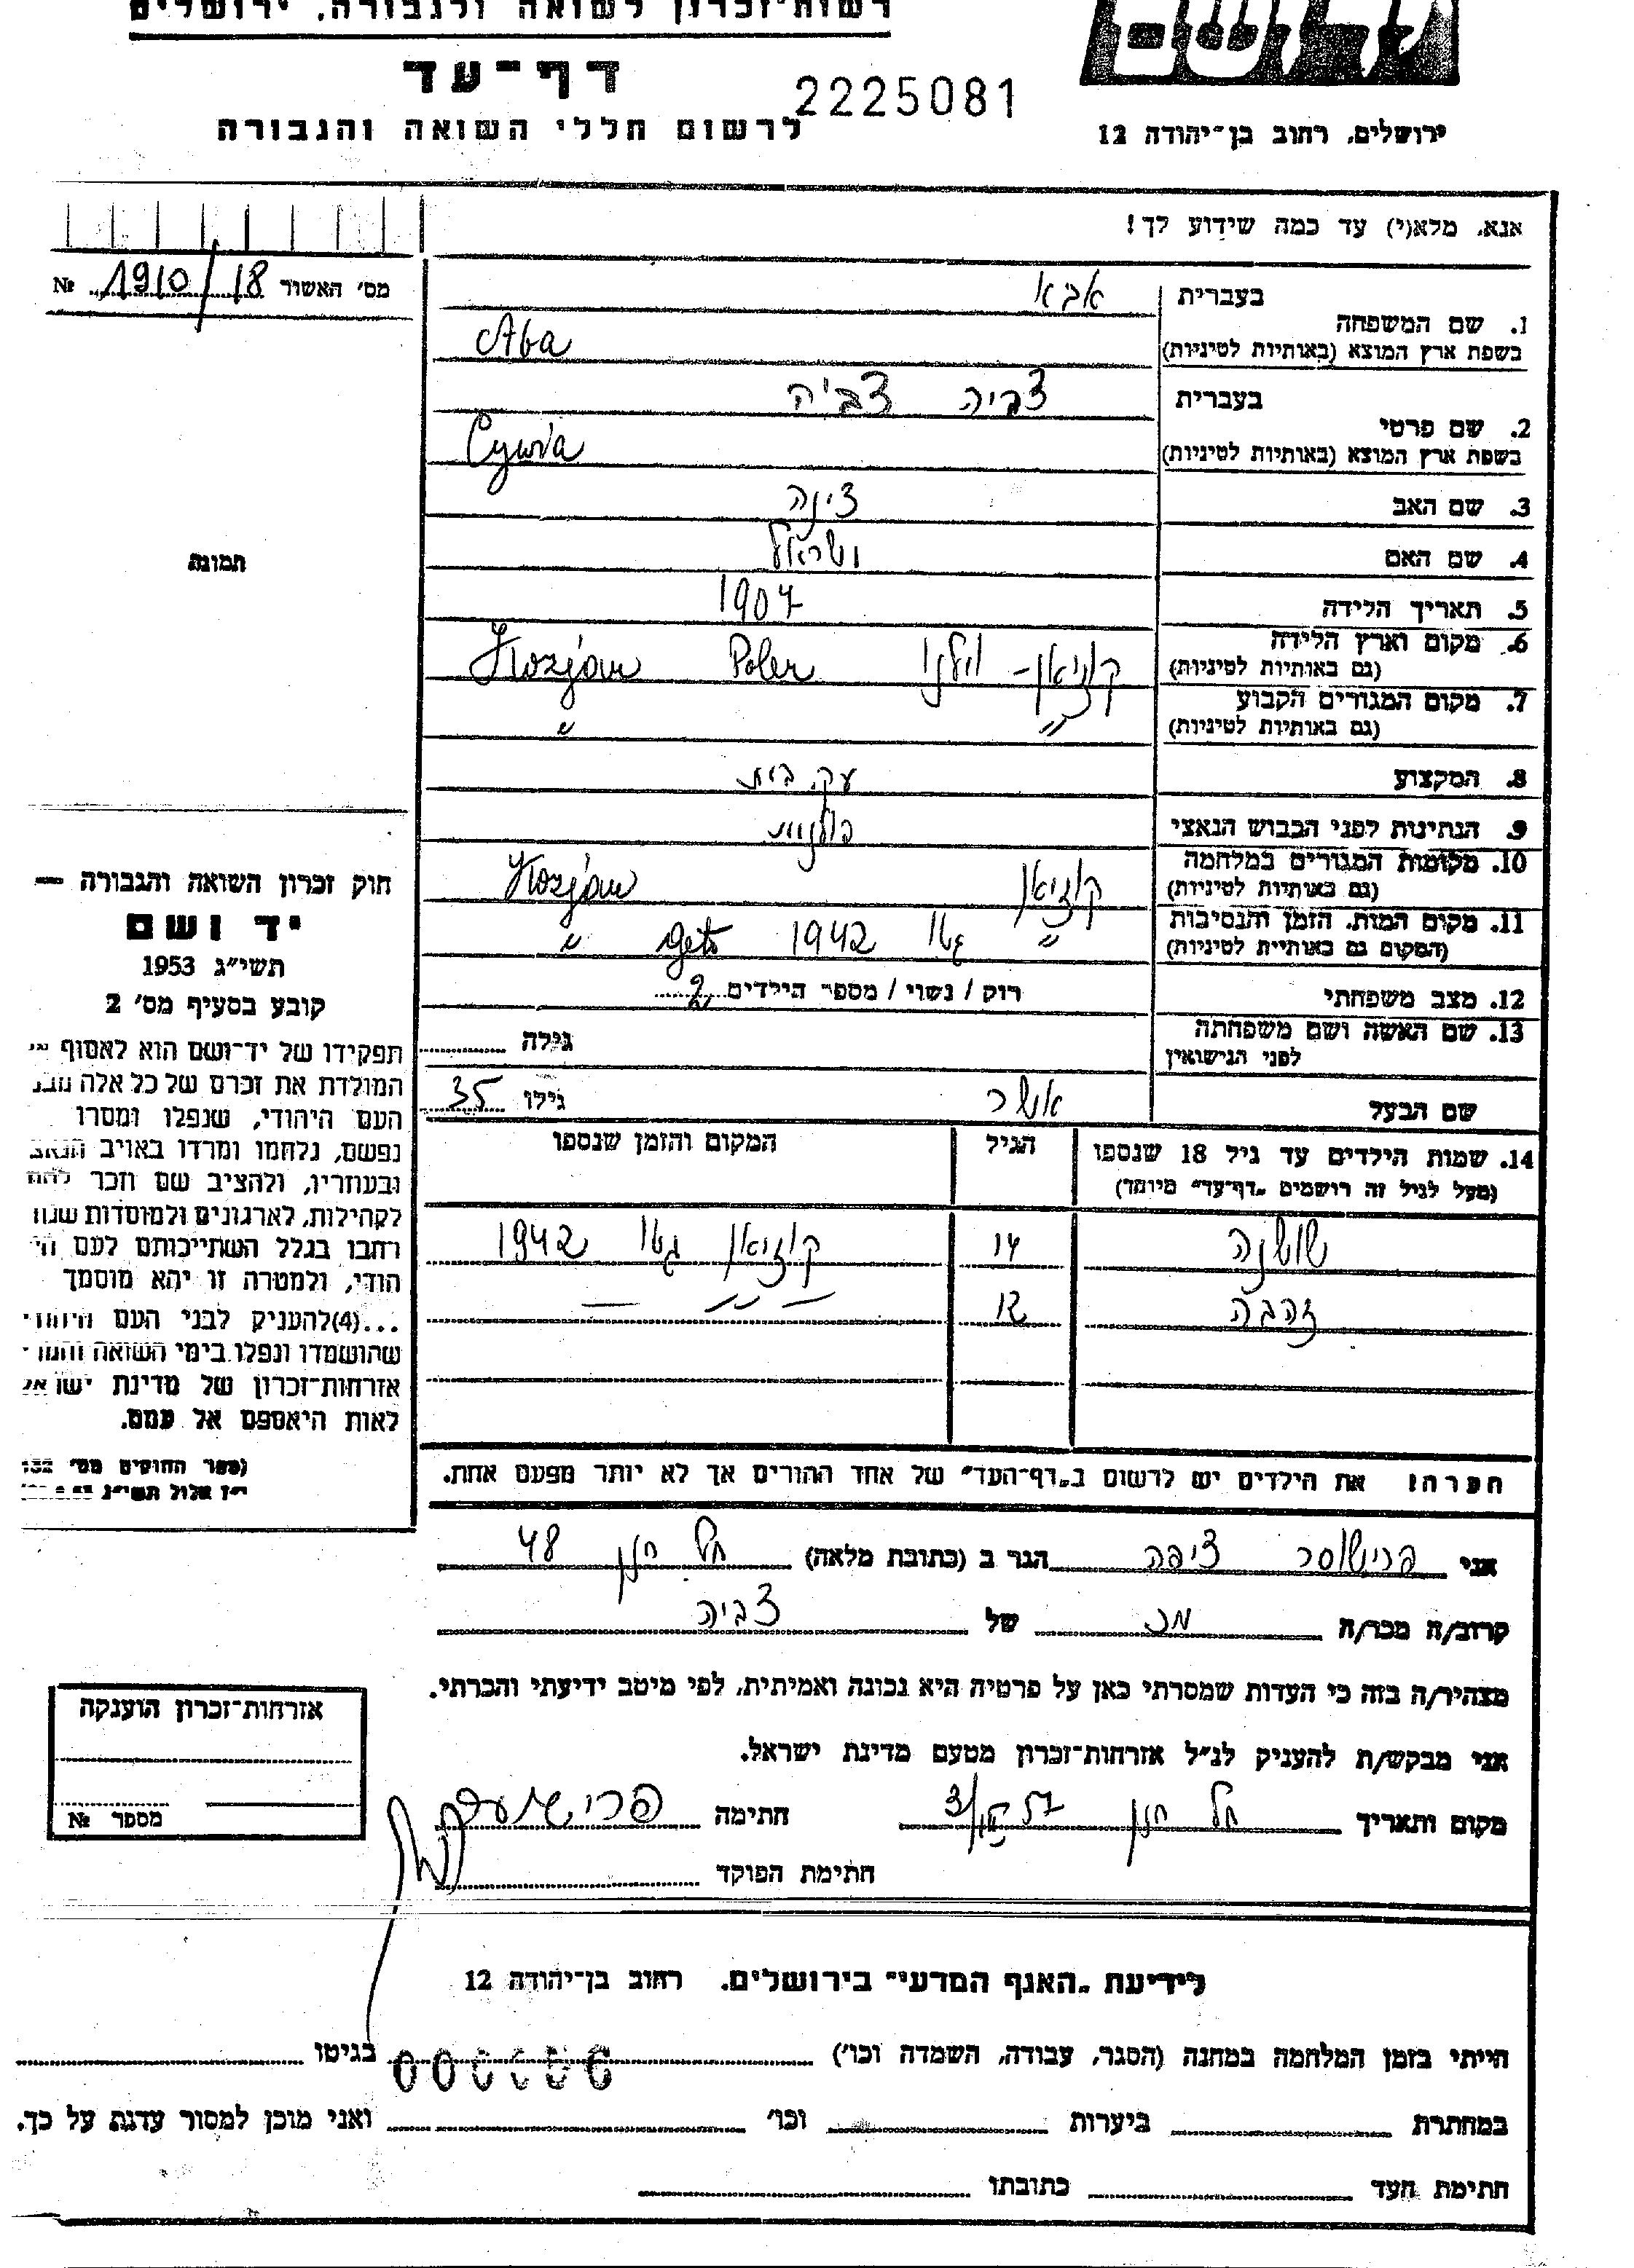 רשות־זכרון לשואה ולגבורה, ירושלים
דף־עד
2225081
לרשום חללי השואה והגבורה
ירושלים, רחוב בן־יהודה 12
אנא, מלא(י) עד כמה שידוע לך!
מס' האשור 1910/18 №
תמונה
בעברית אבא
1. שם המשפחה
בשפת ארץ המוצא (באותיות לטיניות) Aba
בעברית צביה צביה
2. שם פרטי
בשפת ארץ המוצא (באותיות לטיניות) Cywia
3. שם האב
4. שם האם
5. תאריך הלידה 1907
6. מקום וארץ הלידה
(גם באותיות לטיניות) קוזיאן - Polen Kozjan
7. מקום המגורים הקבוע
(גם באותיות לטיניות) " "
8. המקצוע עק. בית
9. הנתינות לפני הכבוש הנאצי פולנית
10. מקומות המגורים במלחמה
(גם באותיות לטיניות) קוזיאן Kozjan
11. מקום המות, הזמן והנסיבות
(המקום גם באותיות לטיניות) " גטו 1942 geto "
12. מצב משפחתי רוק / נשוי / מספר הילדים 2
13. שם האשה ושם משפחתה
לפני הנישואין גילה
שם הבעל אשר גילו 35
14. שמות הילדים עד גיל 18 שנספו הגיל המקום והזמן שנספו
(מעל לגיל זה רושמים „דף־עד" מיוחד)
שושנה 14 קוזיאן גטו 1942
זהבה 12 — " —
חוק זכרון השואה והגבורה —
יד ושם
תשי"ג 1953
קובע בסעיף מס' 2
תפקידו של יד־ושם הוא לאסוף אל
המולדת את זכרם של כל אלה מבני
העם היהודי, שנפלו ומסרו
נפשם, נלחמו ומרדו באויב הנאצי
ובעוזריו, ולהציב שם וזכר להם
לקהילות, לארגונים ולמוסדות שנח
רחבו בגלל השתייכותם לעם הי
הודי, ולמטרה זו יהא מוסמך
...(4) להעניק לבני העם היהודי
שהושמדו ונפלו בימי השואה והמרי
אזרחות־זכרון של מדינת ישראל
לאות היאספם אל עמם.
(ספר החוקים מס' 132
י"ז אלול תשי"ג
הערה! את הילדים יש לרשום ב„דף־העד" של אחד ההורים אך לא יותר מפעם אחת.
אני ציפה הגר ב (כתובת מלאה) תל חנן 48
קרוב/ה מכר/ה מכ של צביה
מצהיר/ה בזה כי העדות שמסרתי כאן על פרטיה היא נכונה ואמיתית, לפי מיטב ידיעתי והכרתי.
אני מבקש/ת להעניק לנ"ל אזרחות־זכרון מטעם מדינת ישראל.
מקום ותאריך תל חנן חתימה
חתימת הפוקד
אזרחות־זכרון הוענקה
מספר №
לידיעת „האגף המדעי" בירושלים, רחוב בן־יהודה 12
הייתי בזמן המלחמה במחנה (הסגר, עבודה, השמדה וכו') בגיטו
במחתרת ביערות וכו' ואני מוכן למסור עדות על כך.
חתימת העד כתובתו